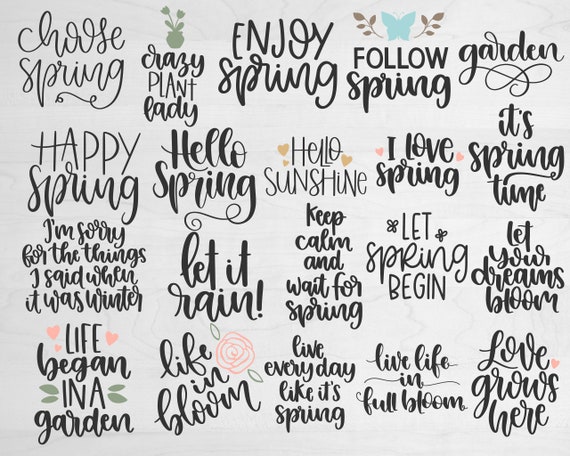 choose
spring
crazy
PLANT
lady
ENJOY
spring
FOLLOW
spring
garden
HAPPY
spring
Hello
Spring
HELLO
SUNSHINE
I love
spring
it's
spring
time
I'm sorry
for the things
I said when
it was winter
let it
rain!
keep
calm
and
wait for
spring
LET
SPRING
BEGIN
let
your
dreams
bloom
LIFE
began
IN A
garden
life
in
bloom
live
every day
like it's
spring
live life
in
full bloom
Love
grows
here